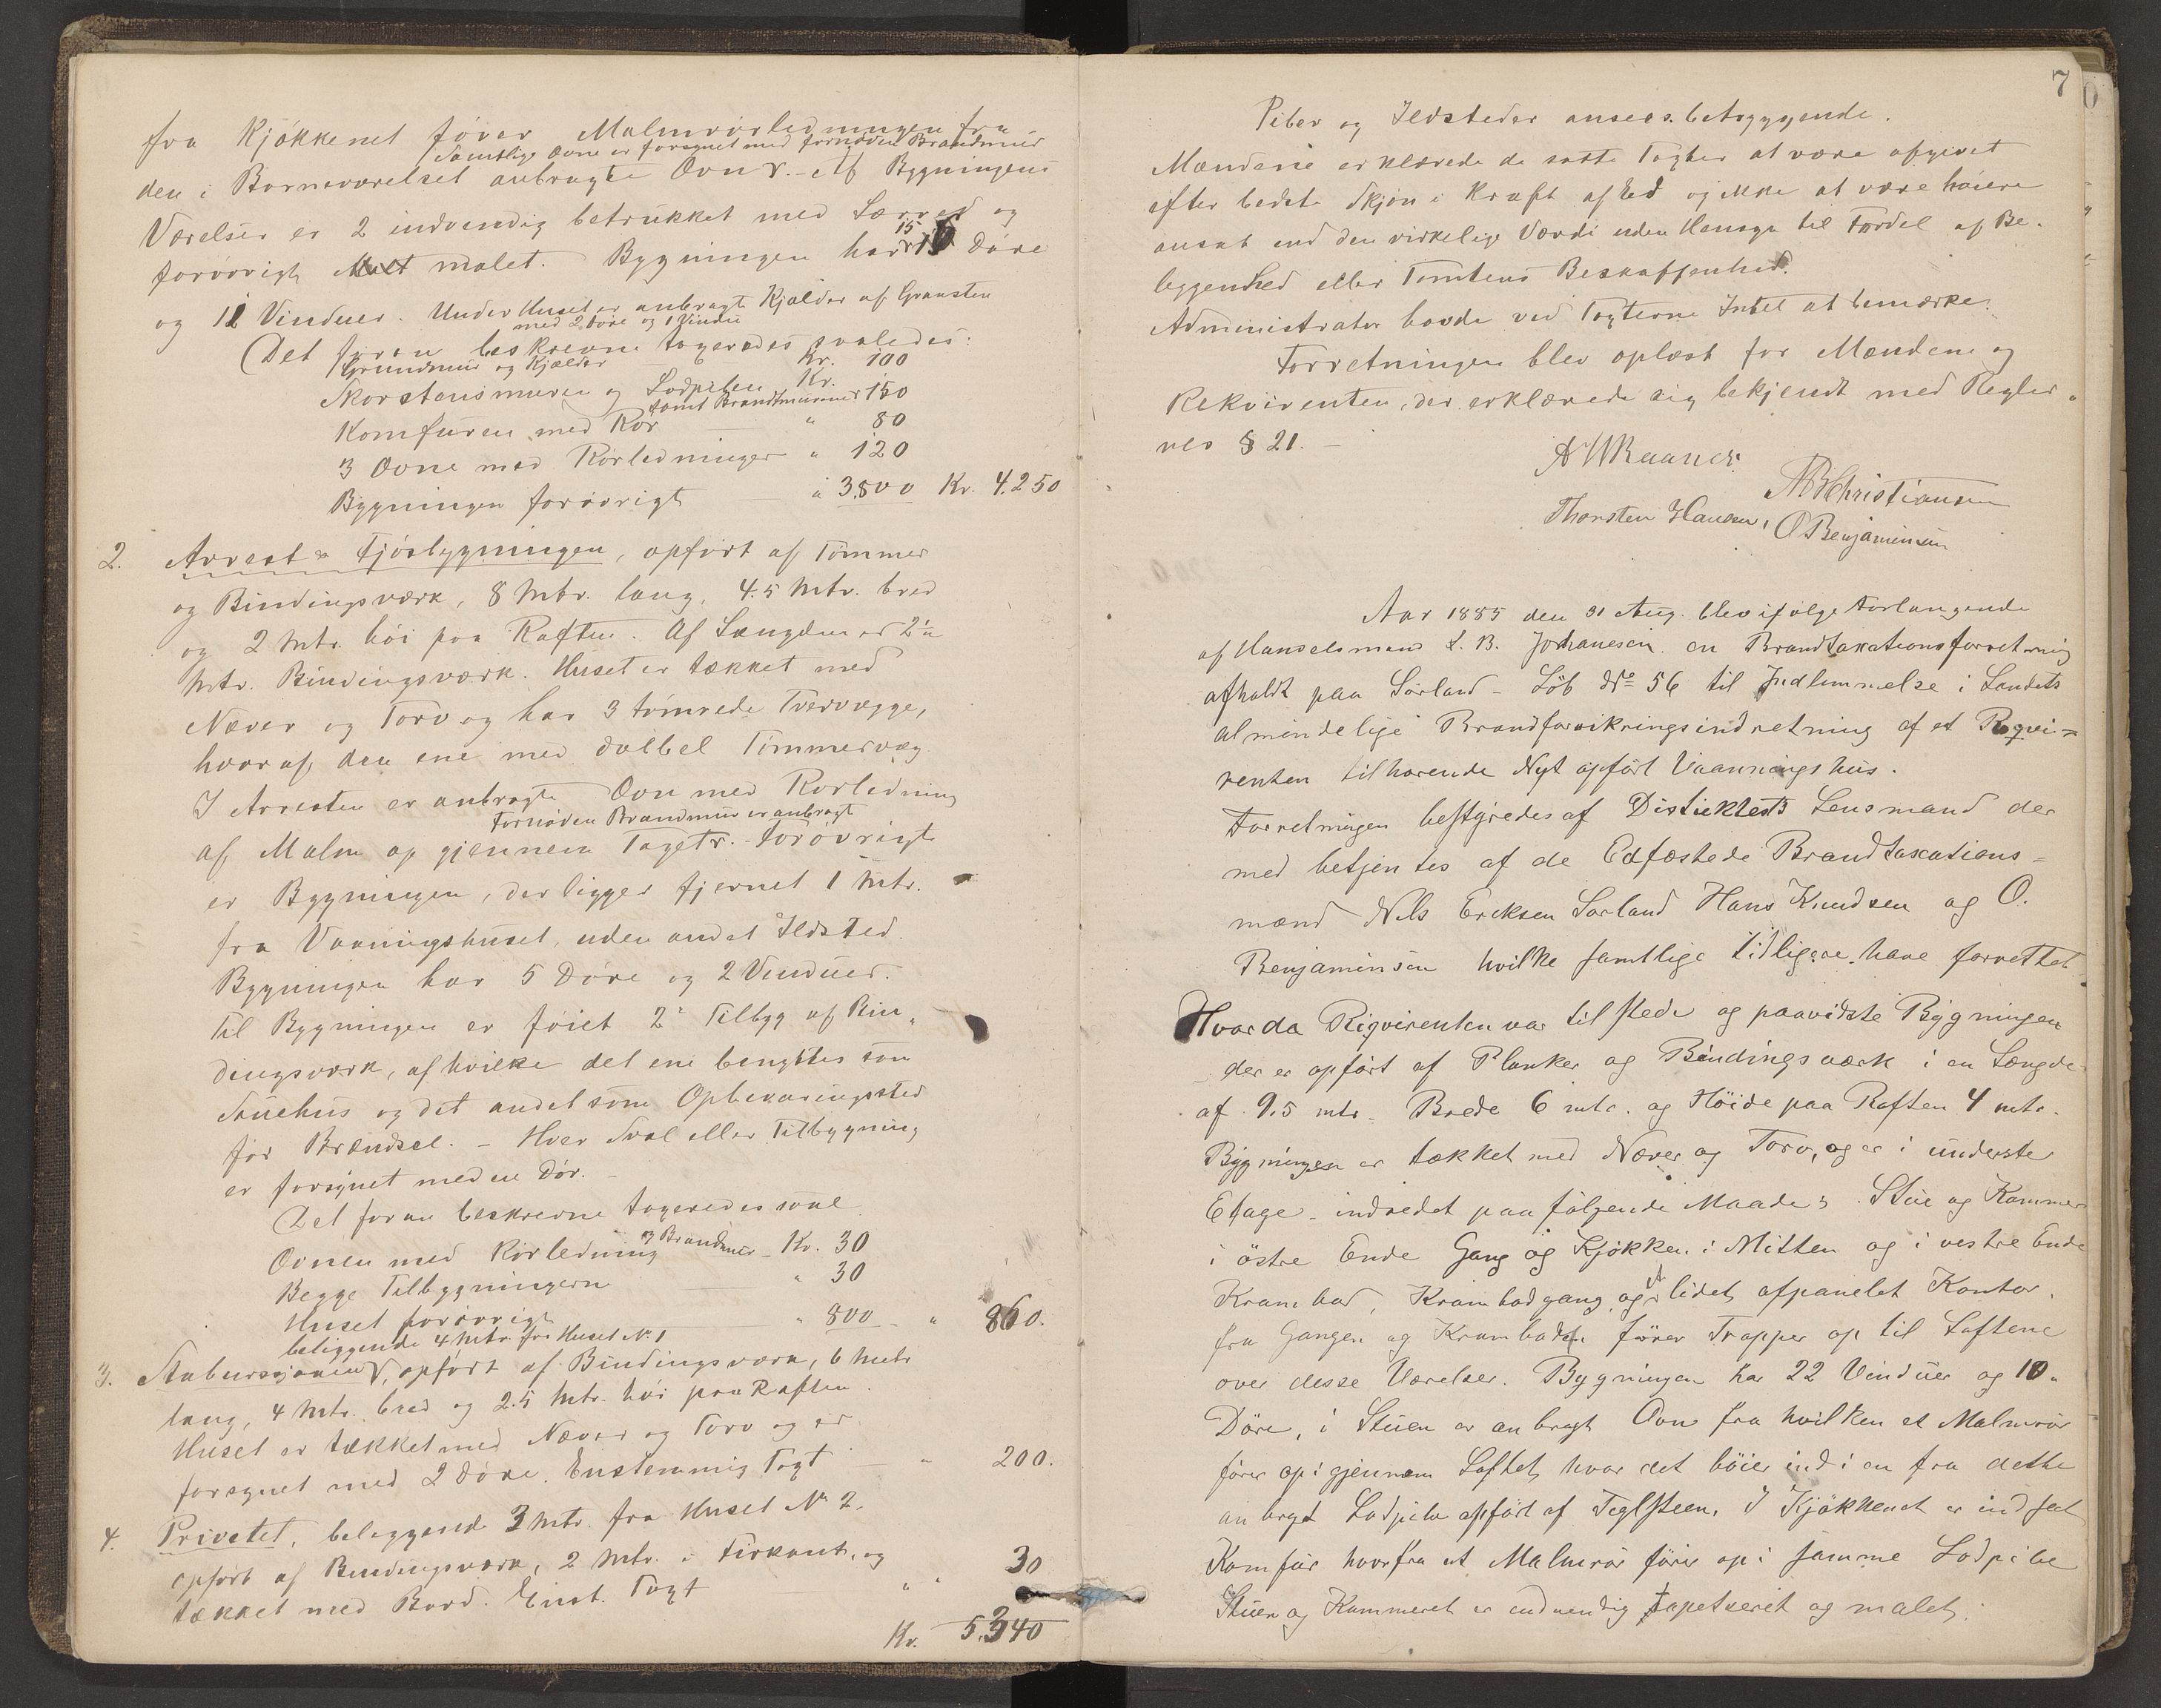 fra Kjøkkenet fører Malmrørledningen fra
Samtlige Ovne er forsynet med fornøden Brandmur
den i Barneværelset anbragte Ovn. - Af Bygningens
Værelser er 2 indvendig betrukket med Lærred og
forøvrigt malet. Bygningen har 15 Døre
og 11 Vinduer. Under Huset er anbragt Kjælder af Graasten
med 2 Døre og 1 Vindu
Det foran beskrevne taxeredes saaledes:
Grundmur og Kjælder Kr. 100
Skorstensmuren og Lodpiben Kr.
samt Brandmurene 150
Komfuren med Rør " 80
3 Ovne med Rørledninger " 120
Bygningen forøvrigt " 3800 Kr. 4.250
2. Arrest & Fjøsbygningen, opført af Tømmer
og Bindingsværk, 8 Mtr. lang, 4.5 Mtr. bred
og 2 Mtr. høi paa Raften. Af Længden er 2½
Mtr. Bindingsværk. Huset er tækket med
Næver og Torv og har 3 tømrede Tvervægge,
hvoraf den ene med dobbel Tømmervæg.
I Arresten er anbragt Ovn med Rørledning
Fornøden Brandmur er anbragt
af Malm op gjennem Taget. - Forøvrigt
er Bygningen, der ligger fjernet 1 Mtr.
fra Vaaningshuset, uden andet Ildsted.
Bygningen har 5 Døre og 2 Vinduer.
Til Bygningen er føiet 2de Tilbyg af Bin-
dingsværk, af hvilke det ene benyttes som
og det andet som Opbevaringssted
for Brændsel. - Hver Sval eller Tilbygning
er forsynet med en Dør. -
Det foran beskrevne taxeredes saal.
Ovnen med Rørledning og Brandmur - Kr. 30
Begge Tilbygningerne " 30
Huset forøvrigt " 800 " 860.
beliggende 4 Mtr. fra Huset N. 1
3. opført af Bindingsværk, 6 Mtr
lang, 4 Mtr. bred og 2.5 Mtr. høi paa Raften.
Huset er tækket med Næver og Torv og er
forsynet med 2 Døre. Enstemmig Taxt " 200.
4. Privetet, beliggende 3 Mtr. fra Huset No 2.
opført af Bindingsværk, 2 Mtr. i Firkant, og
tækket med Bord. Enst. Taxt " " 30
Kr. 5340
7
Piber og Ildsteder ansees betryggende.
Mændene erklærede de satte Taxter at være afgivet
efter bedste Skjøn i Kraft af Ed og ikke at være høiere
ansat end den virkelige Værdi uden Hensyn til Fordel af Be-
liggenhed eller Tomtens Beskaffenhed.
Administrator havde ved Taxterne Intet at bemærke.
Forretningen blev oplæst for Mændene og
Rekvirenten, der erklærede sig bekjendt med Regler-
nes § 21. -
A W Raaner
A B Christiansen
Thorsten Hansen, O Benjaminsen
Aar 1885 den 31 Aug. blev ifølge Forlangende
af Handelsmand L. B. Johanesen en Brandtaxationsforretning
afholdt paa Sørland - Løb No 56 til Indlemmelse i Landets
almindelige Brandforsikringsindretning af et Reqvi=
renten tilhørende Nyt opført Vaanningshus.
Forretningen bestyredes af Distriktets Lensmand der
med betjentes af de Edfæstede Brandtaxations=
mænd Nils Ericksen Sørland Hans Knudsen og O.
Benjaminsen hvilke samtlige tidligere have forrettet
Hvorda Riqvirenten var tilstede og paaviste Bygningen
der er opført af Planker og Bindingsværk i en Længde
af 9.5 mtr - Brede 6 mtr. og Höide paa Raften 4 mtr.
Bygningen er tækket med Næver og Torv, og er i underste
Etage - indredet paa følgende Maade: Stue og Kammer
i östre Ende Gang og Kjøkken i Mitten og i vestre Ende
Krambod, Krambodgang og et lidet afpanelet Kontor.
fra Gangen og Kramboden fører Trapper op til Loftene
over desse Værelser. Bygningen har 22 Vinduer og 10
Döre, i Stuen er anbragt Ovn fra hvilken et Malmrör
förer op igjennem Loftet, hvor det böier ind i en fra dette
anbragt Lodpibe opfört af Teglsteen. I Kjökkenet er indsat
Komfür hvorfra et Malmrör förer op i samme Lodpibe
Stuen og Kammeret er indvendig tapetseret og malet.